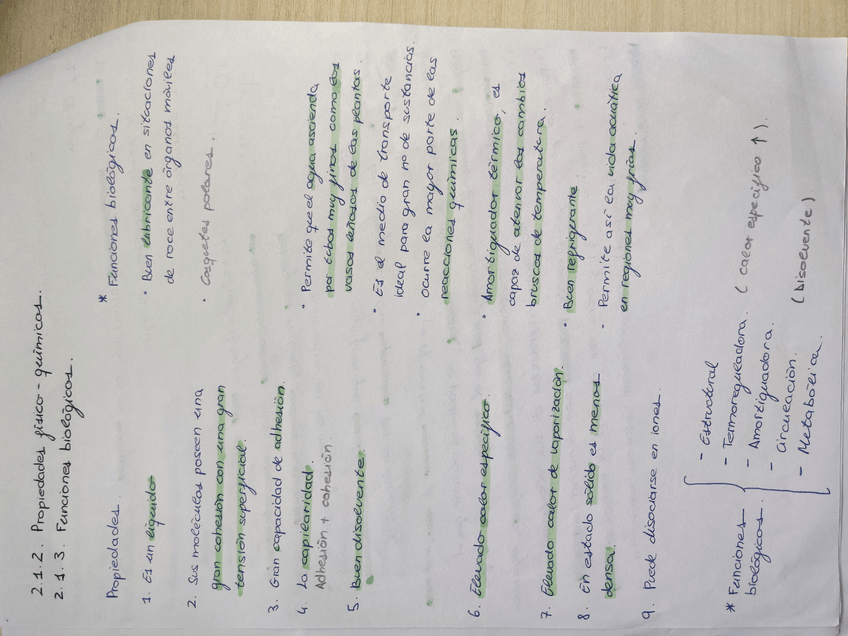 2.1.2. Propiedades físico-químicos.
2.1.3. Funciones biológicos.
Propiedades.
* Funciones biológicos.
1. Es un líquido
• Buen lubricante en situaciones
de roce entre órganos móviles
2. Sus moléculas poseen una
gran cohesión con una gran
tensión superficial.
• Casquetes polares.
3. Gran capacidad de adhesión.
4. La capilaridad
Adhesión + cohesión
• Permite que el agua ascienda
por tubos muy finos como los
vasos leñosos de las plantas.
5. Buen disolvente.
• Es el medio de transporte
ideal para gran nº de sustancias.
• ocurre la mayor parte de las
reacciones químicas.
6. Elevado calor específico.
• Amortiguador térmico, es
capaz de atenuar los cambios
bruscos de temperatura.
7. Elevado calor de vaporización.
• Buen refrigerante
8. En estado sólido es menos
densa.
- Permite así la vida acuática
en regiones muy frías.
9. Puede disociarse en iones.
* Funciones
biológicos.
- Estructural
- Termorreguladora. ( calor específico ↑ ).
- Amortiguadora.
- Circulación.
- Metabólica. ( Disolvente )